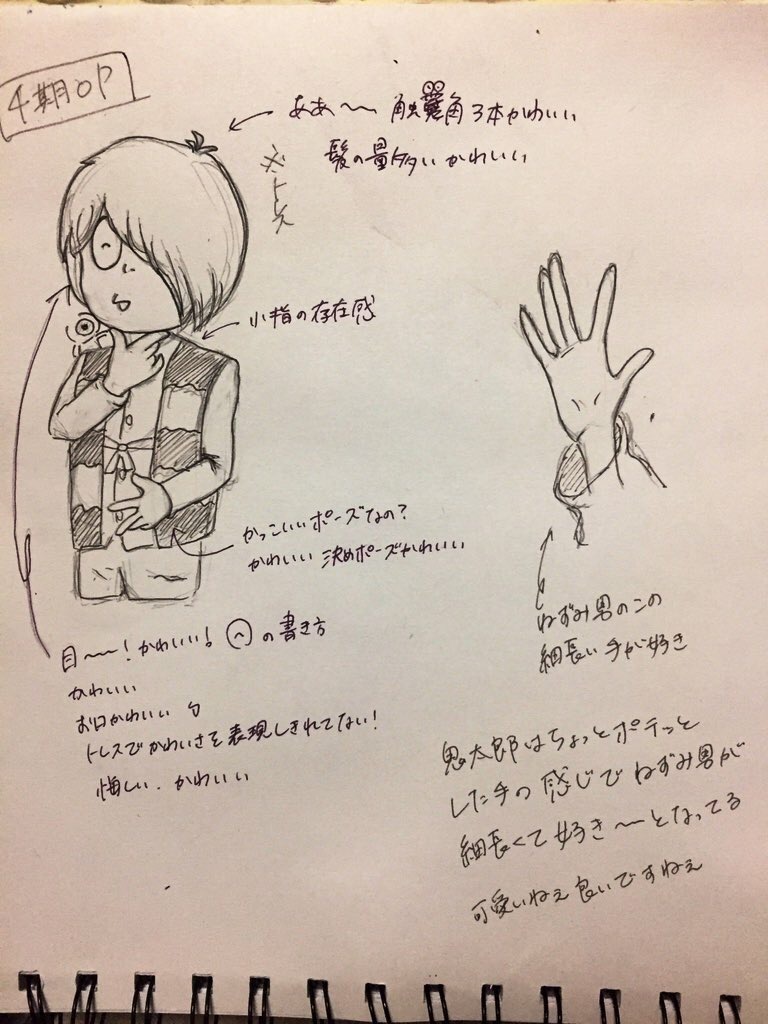 4期OP
ああ〜〜 触角3本かわいい
髪の量多いかわいい
※トレス
小指の存在感
かっこいいポーズなの?
かわいい 決めポーズかわいい
目〜〜!かわいい! の書き方
かわいい
お口かわいい
トレスでかわいさを表現しきれてない!
悔しい.かわいい
ねずみ男のこの
細長い手が好き
鬼太郎はちょっとポテッと
した手の感じでねずみ男が
細長くて好き〜〜となってる
可愛いねぇ良いですねぇ